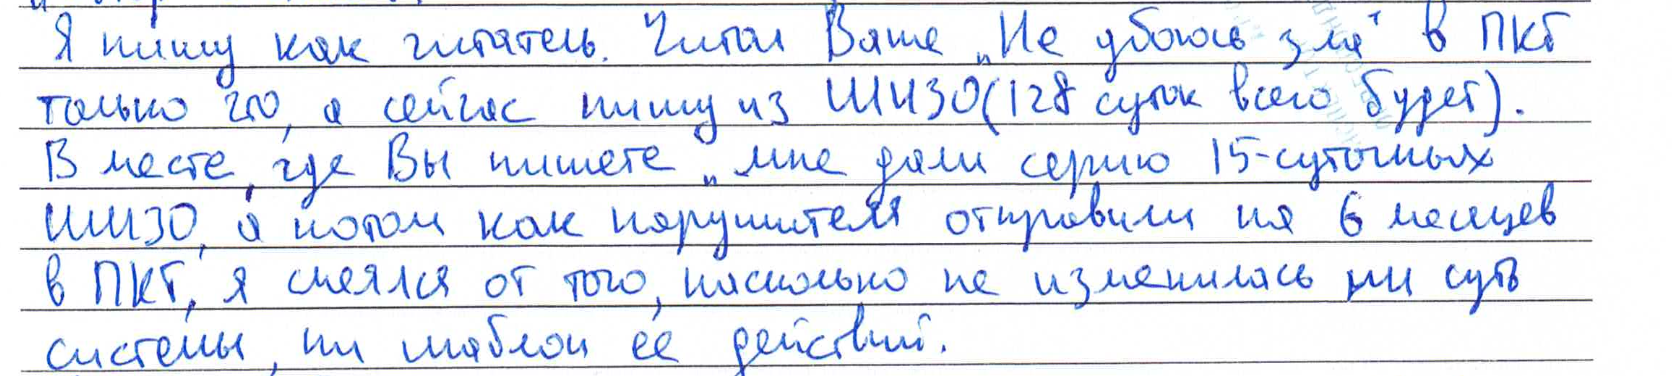 Я пишу как читатель. Читал Ваше „Не убоюсь зла" в ПКТ
только что, а сейчас пишу из ШИЗО (128 суток всего будет).
В месте, где Вы пишете „мне дали серию 15-суточных
ШИЗО, а потом как нарушителя отправили на 6 месяцев
в ПКТ, я смеялся от того, насколько не изменилась ни суть
системы, ни шаблон её действий.